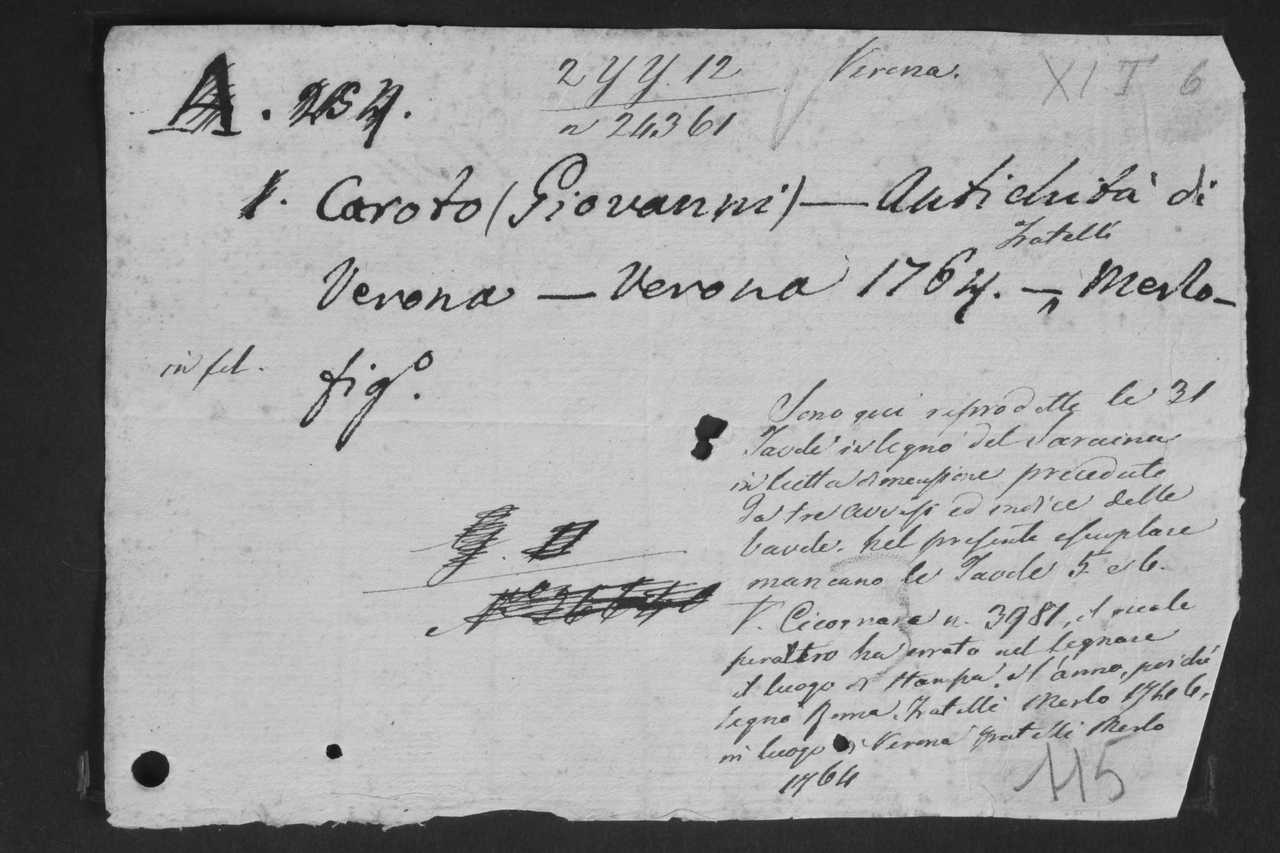 A. 254.
2 y y. 12
Verona.
XI I 6
n 24361
1. Caroto (Giovanni) — Antichità di
Fratelli
Verona — Verona 1764. — Merlo —
in fol.
fig.º
Sono qui reprodotte le 31
Tavole in legno del Saraina
in tutta dimensione precedute
da tre avvisi ed indice delle
tavole. Nel presente esemplare
mancano le Tavole 5 e 6.
V. Cicognara n. 3981, il quale
peraltro ha errato nel segnare
il luogo di stampa, e l'anno, perchè
segnò Roma, Fratelli Merlo
in luogo di Verona Fratelli Merlo
1764
115